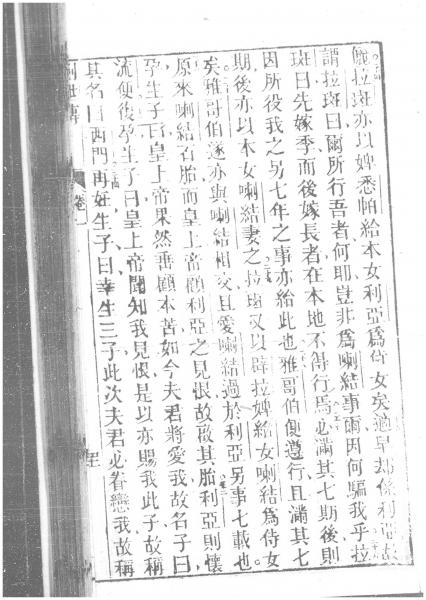 拉班亦以婢悉帕給本女利亞爲侍女矣適早却係利亞故
謂拉班曰爾所行吾者何耶豈非爲喇結事爾因何騙我乎拉
班曰先嫁季而後嫁長者在本地不得行焉必滿其七期後則
因所役我之另七年之事亦給此也雅哥伯便遵行且滿其七
期後亦以本女喇結妻之拉班又以婢給女喇結爲侍女
矣雅哥伯遂亦與喇結相交且愛喇結過於利亞另事七載也
原來喇結石胎而皇上帝顧利亞之見恨故啟其胎利亞則懷
孕生子曰皇上帝果然垂顧本苦如今夫君將愛我故名子曰
流便復孕生子曰皇上帝聞知我見恨是以亦賜我此子故稱
其名曰西門再妊生子曰幸生三子此次夫君必眷戀我故稱
卷一